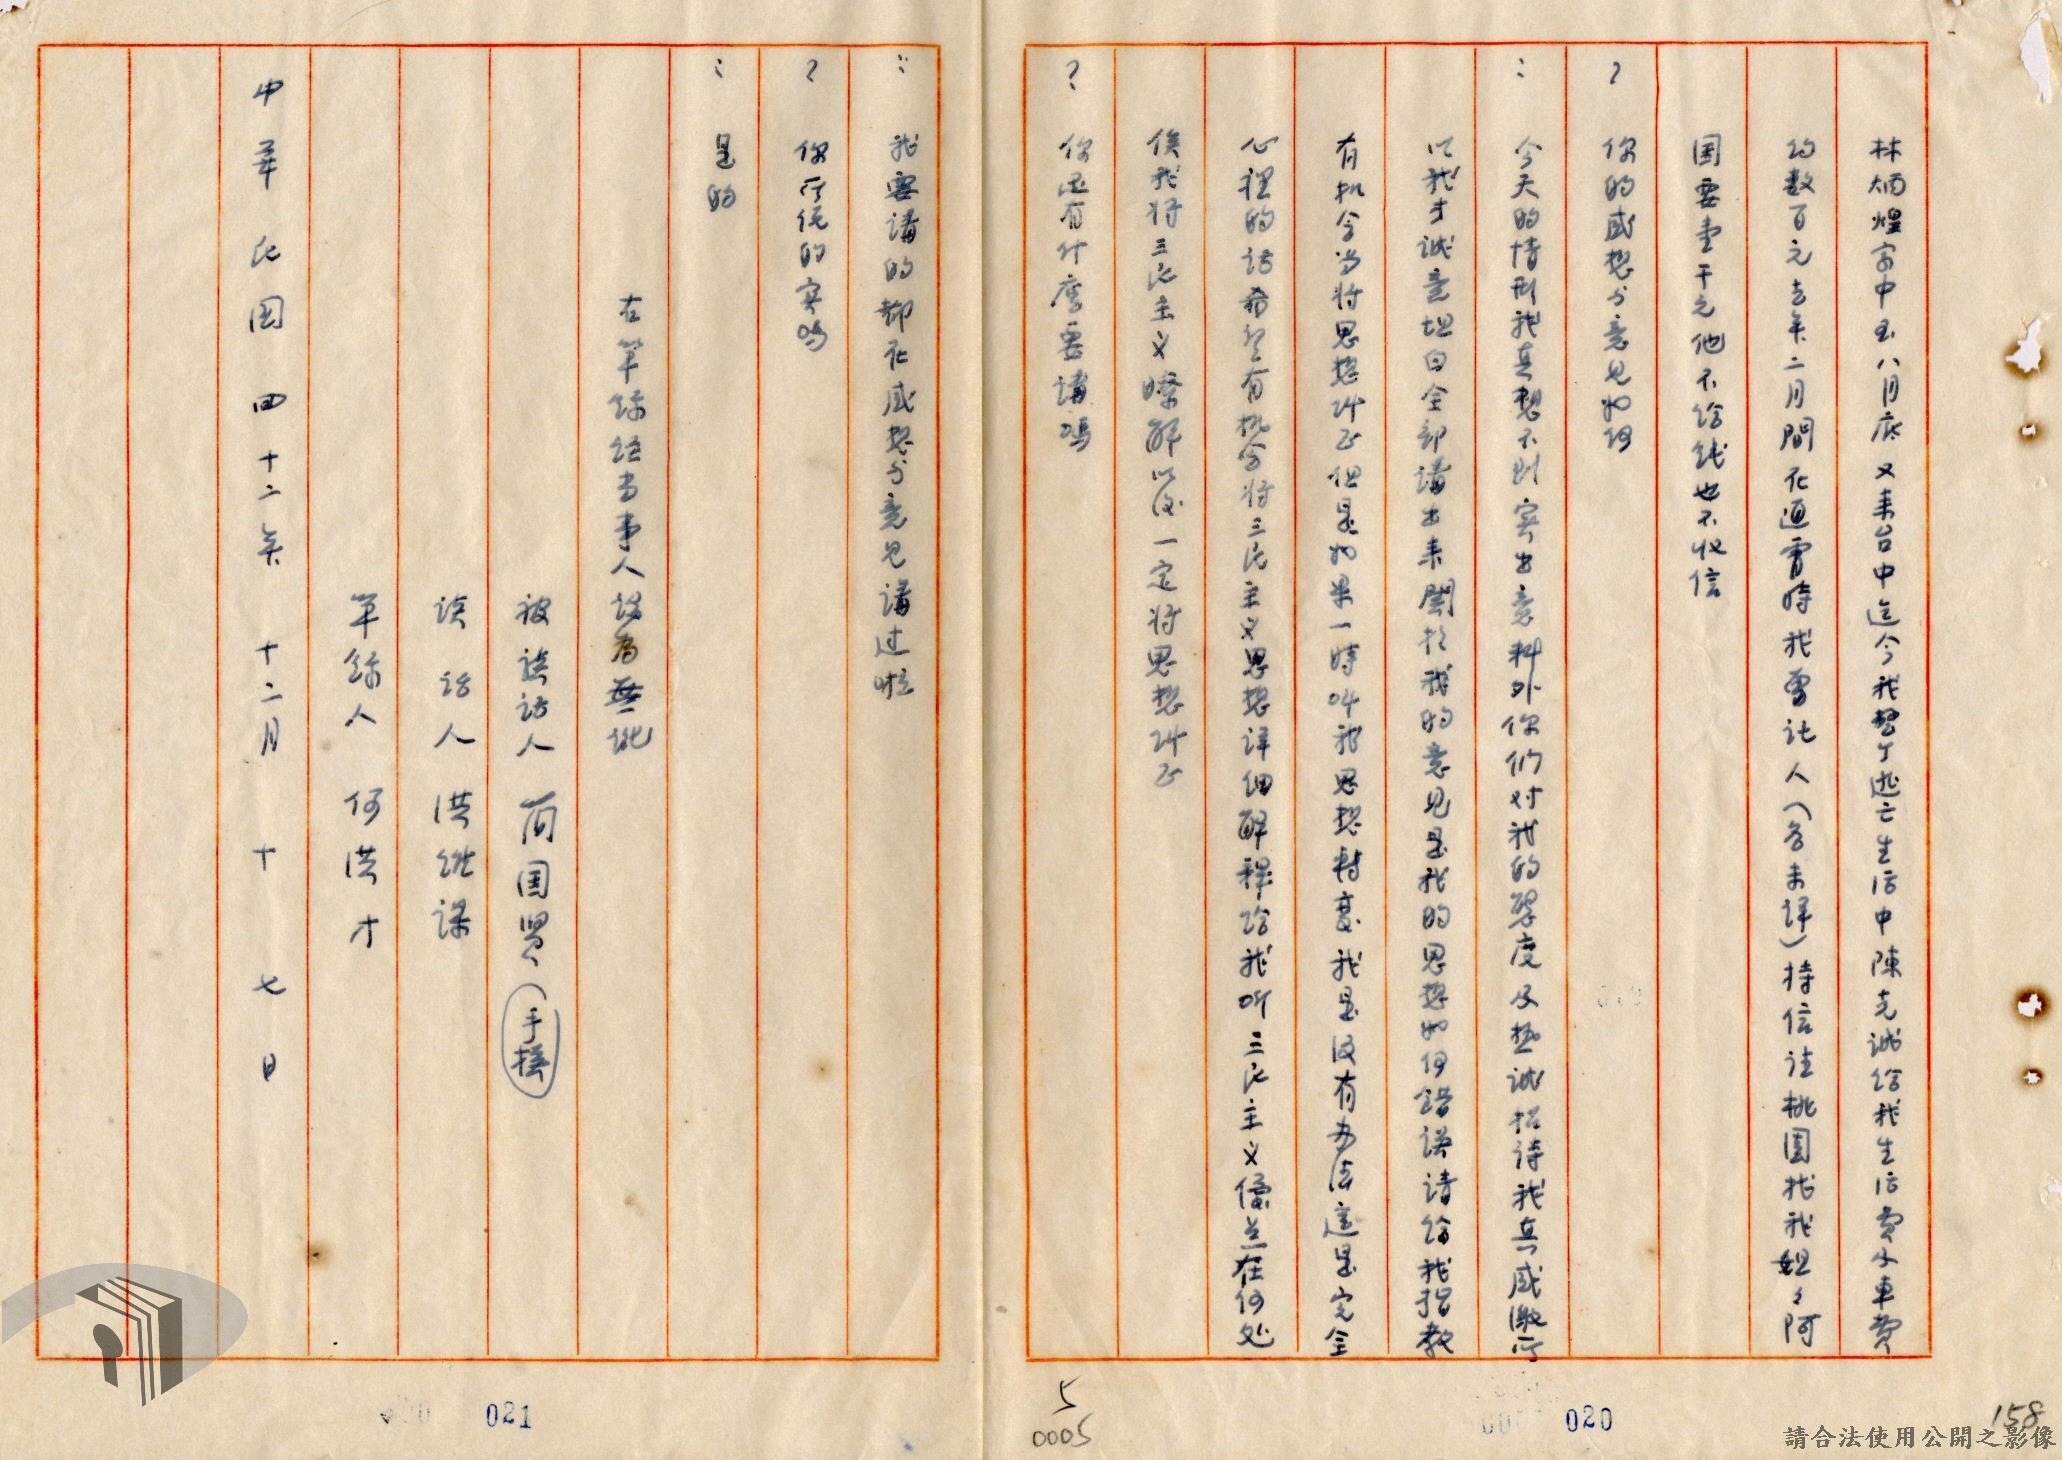 林炳煌家中至八月底又来台中迄今我整个逃亡生活中陳克誠给我生活費及車費
約数百元去年二月間在通霄時我曾託人(名未詳)持信往桃園找我姐々阿
国要壹千元他不给錢也不收信
? 你的感想与意見如何
: 今天的情形我真想不到实出意料外你们对我的態度及热诚招待我真感激所
以我才诚意坦白全部講出来關於我的意見是我的思想如何錯誤请给我指教
有机会当将思想纠正但是如果一時叫我思想轉变我是没有办法這是完全
心裡的话希望有机会将三民主义思想详细解释给我听三民主义優点在何处
俟我将三民主义瞭解以後一定将思想纠正
? 你还有什麽要講嗎
: 我要講的都在感想与意見講过啦
? 你所说的实嗎
: 是的
右筆録经当事人認為無訛
被談話人 简国贤 (手摹)
談話人 洪维謀
筆録人 何洪才
中華民国四十二年十二月十七日
021
5
0005
020
158
請合法使用公開之影像